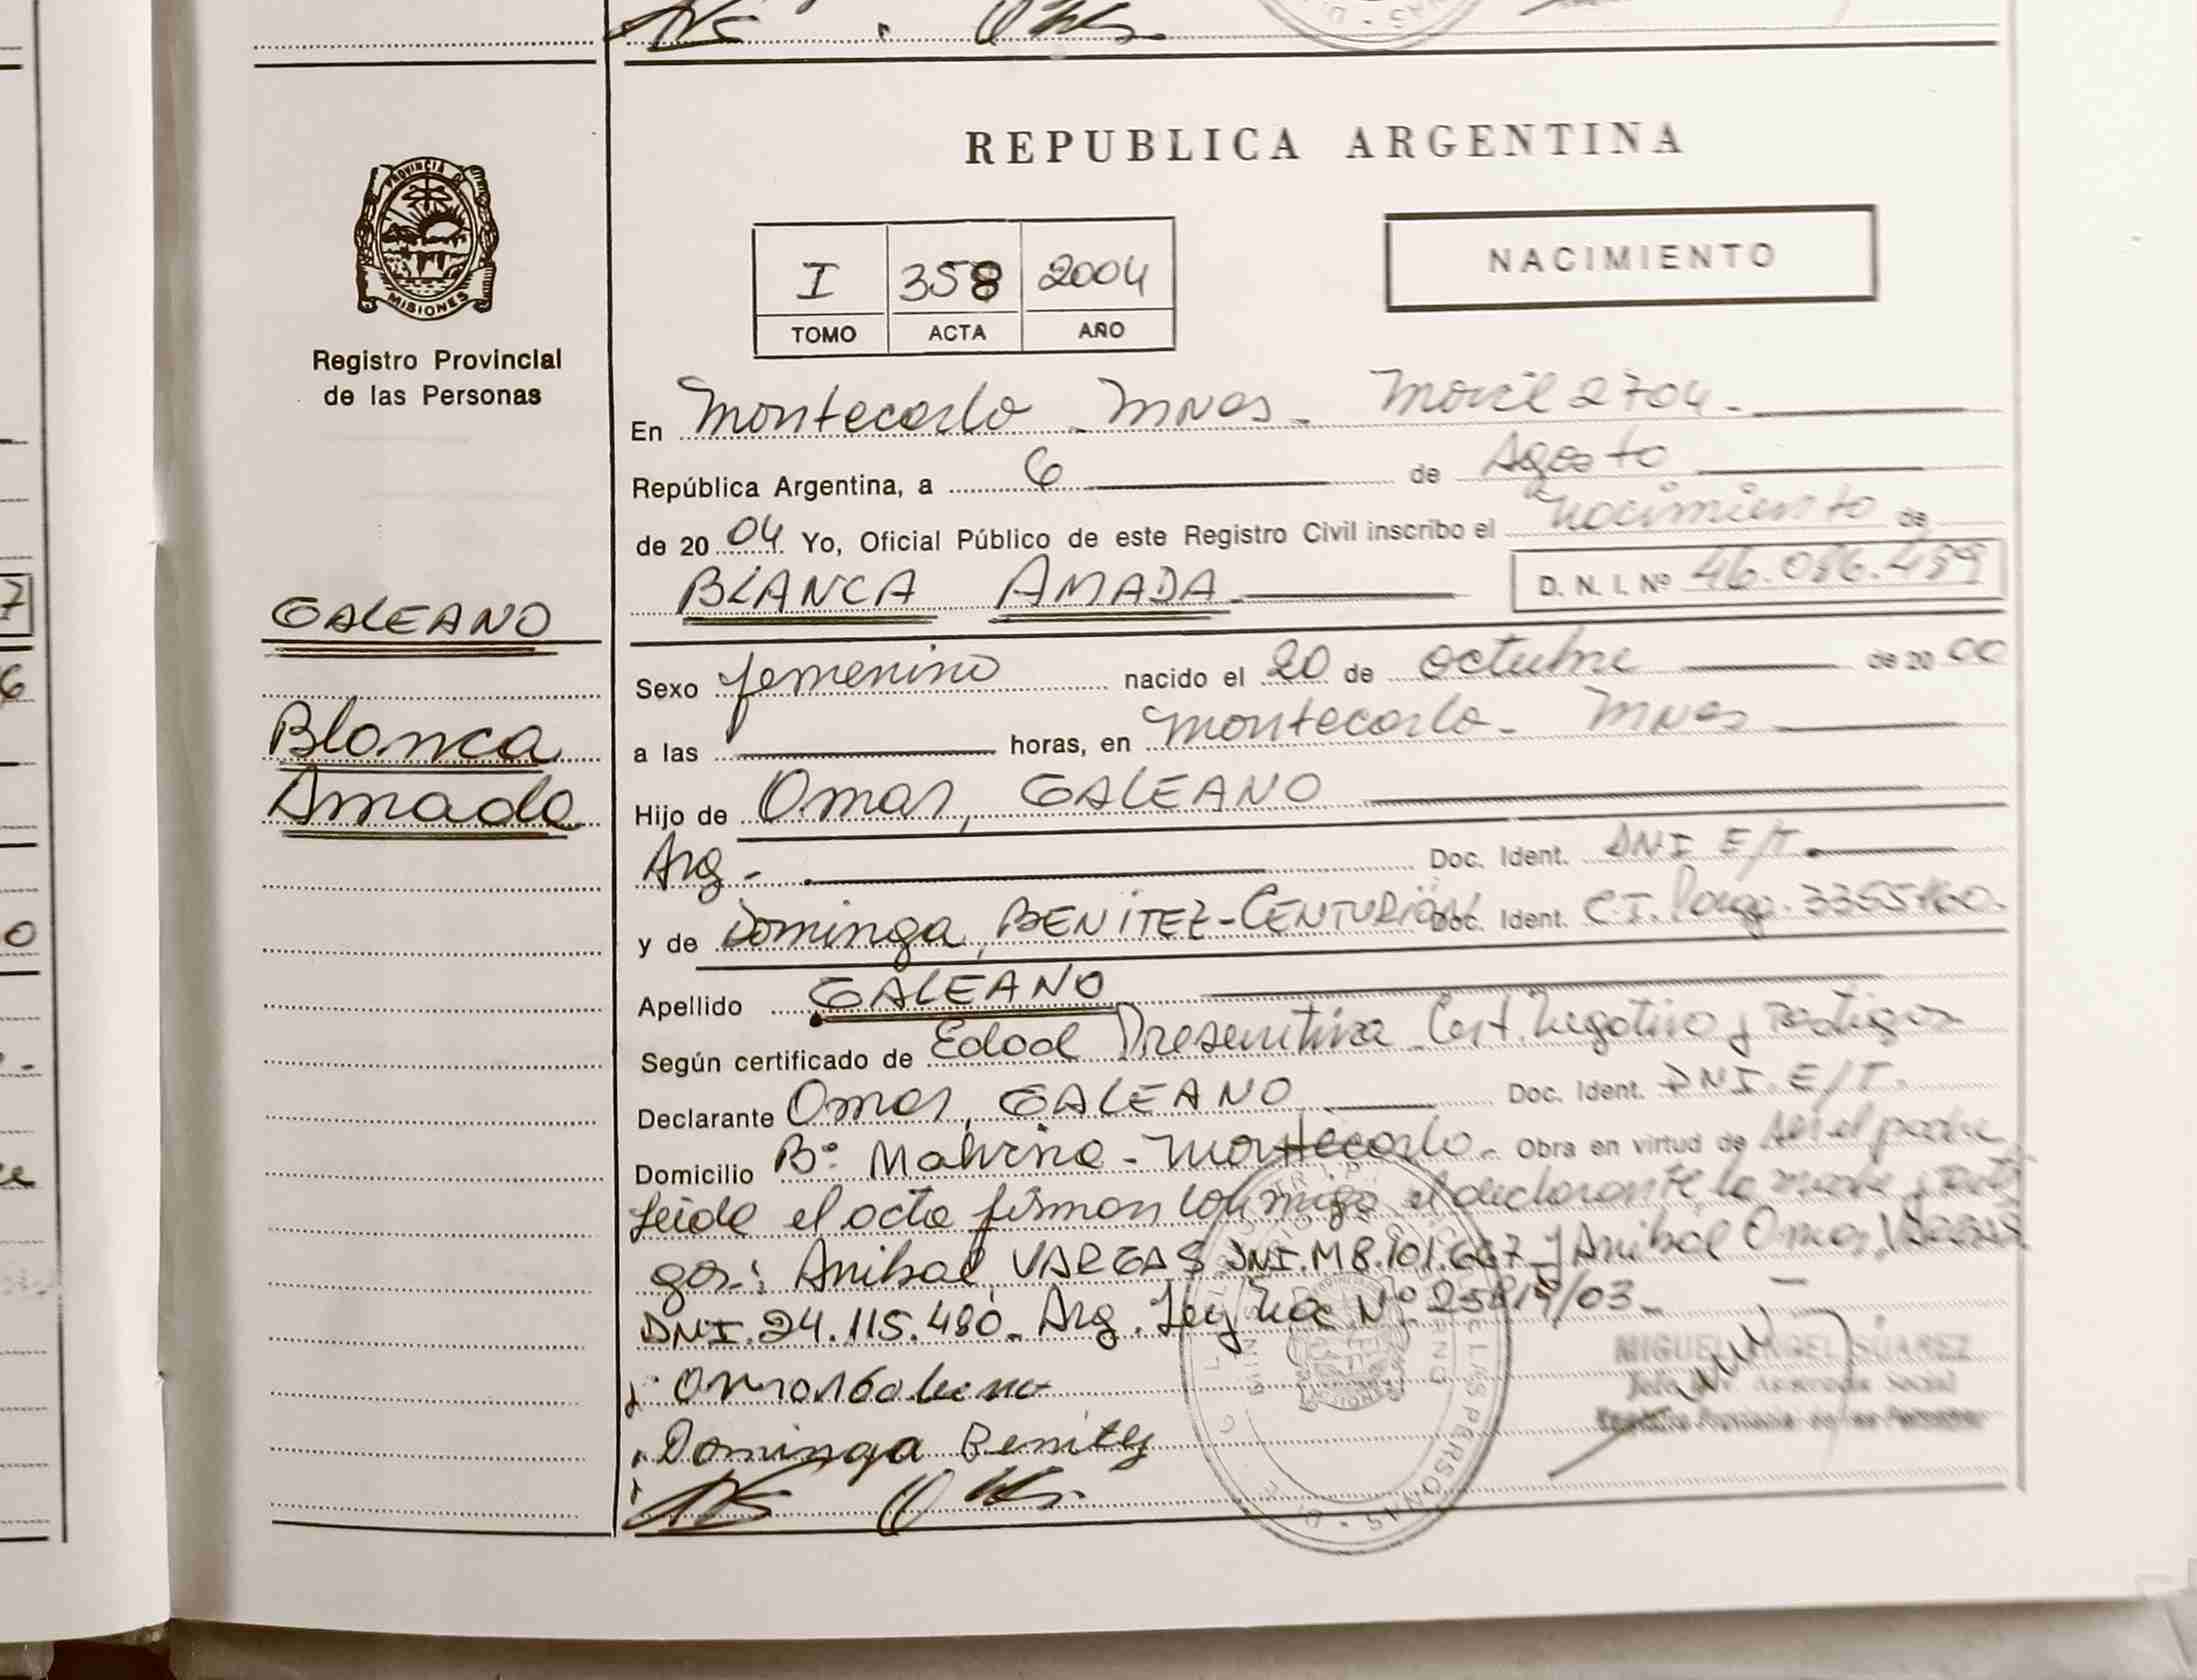 PROVINCIA DE
MISIONES
Registro Provincial
de las Personas
GALEANO
Blanca
Amada
REPUBLICA ARGENTINA
I 358 2004
TOMO ACTA AÑO
NACIMIENTO
En Montecarlo - Mnes - Movil 2704 -
República Argentina, a 6 de Agosto
de 20 04 Yo, Oficial Público de este Registro Civil inscribo el nacimiento de
BLANCA AMADA D. N. I. Nº
Sexo femenino nacido el 20 de octubre de 20 00
a las horas, en Montecarlo - Mnes
Hijo de Omar, GALEANO
Arg - Doc. Ident. DNI E/T.
y de Dominga, BENITEZ-CENTURIÓN Doc. Ident. C.I. Parag.
Apellido GALEANO
Según certificado de Edad Presuntiva Cert. Negativo y Testigos
Declarante Omar, GALEANO Doc. Ident. DNI. E/T.
Domicilio Bº Malvina - Montecarlo - Obra en virtud de ser el padre
Leida el acta firman conmigo el declarante, la madre y testi
gos: Anibal VARGAS DNI.M8.101.667 y Anibal Omar, VARGAS
DNI.24.115.480. Arg. Ley Nac Nº 25819/03 -
Omar Galeano
Dominga Benitez
MIGUEL ANGEL SUAREZ
Jefe Div. Asistencia Social
Registro Provincial de las Personas